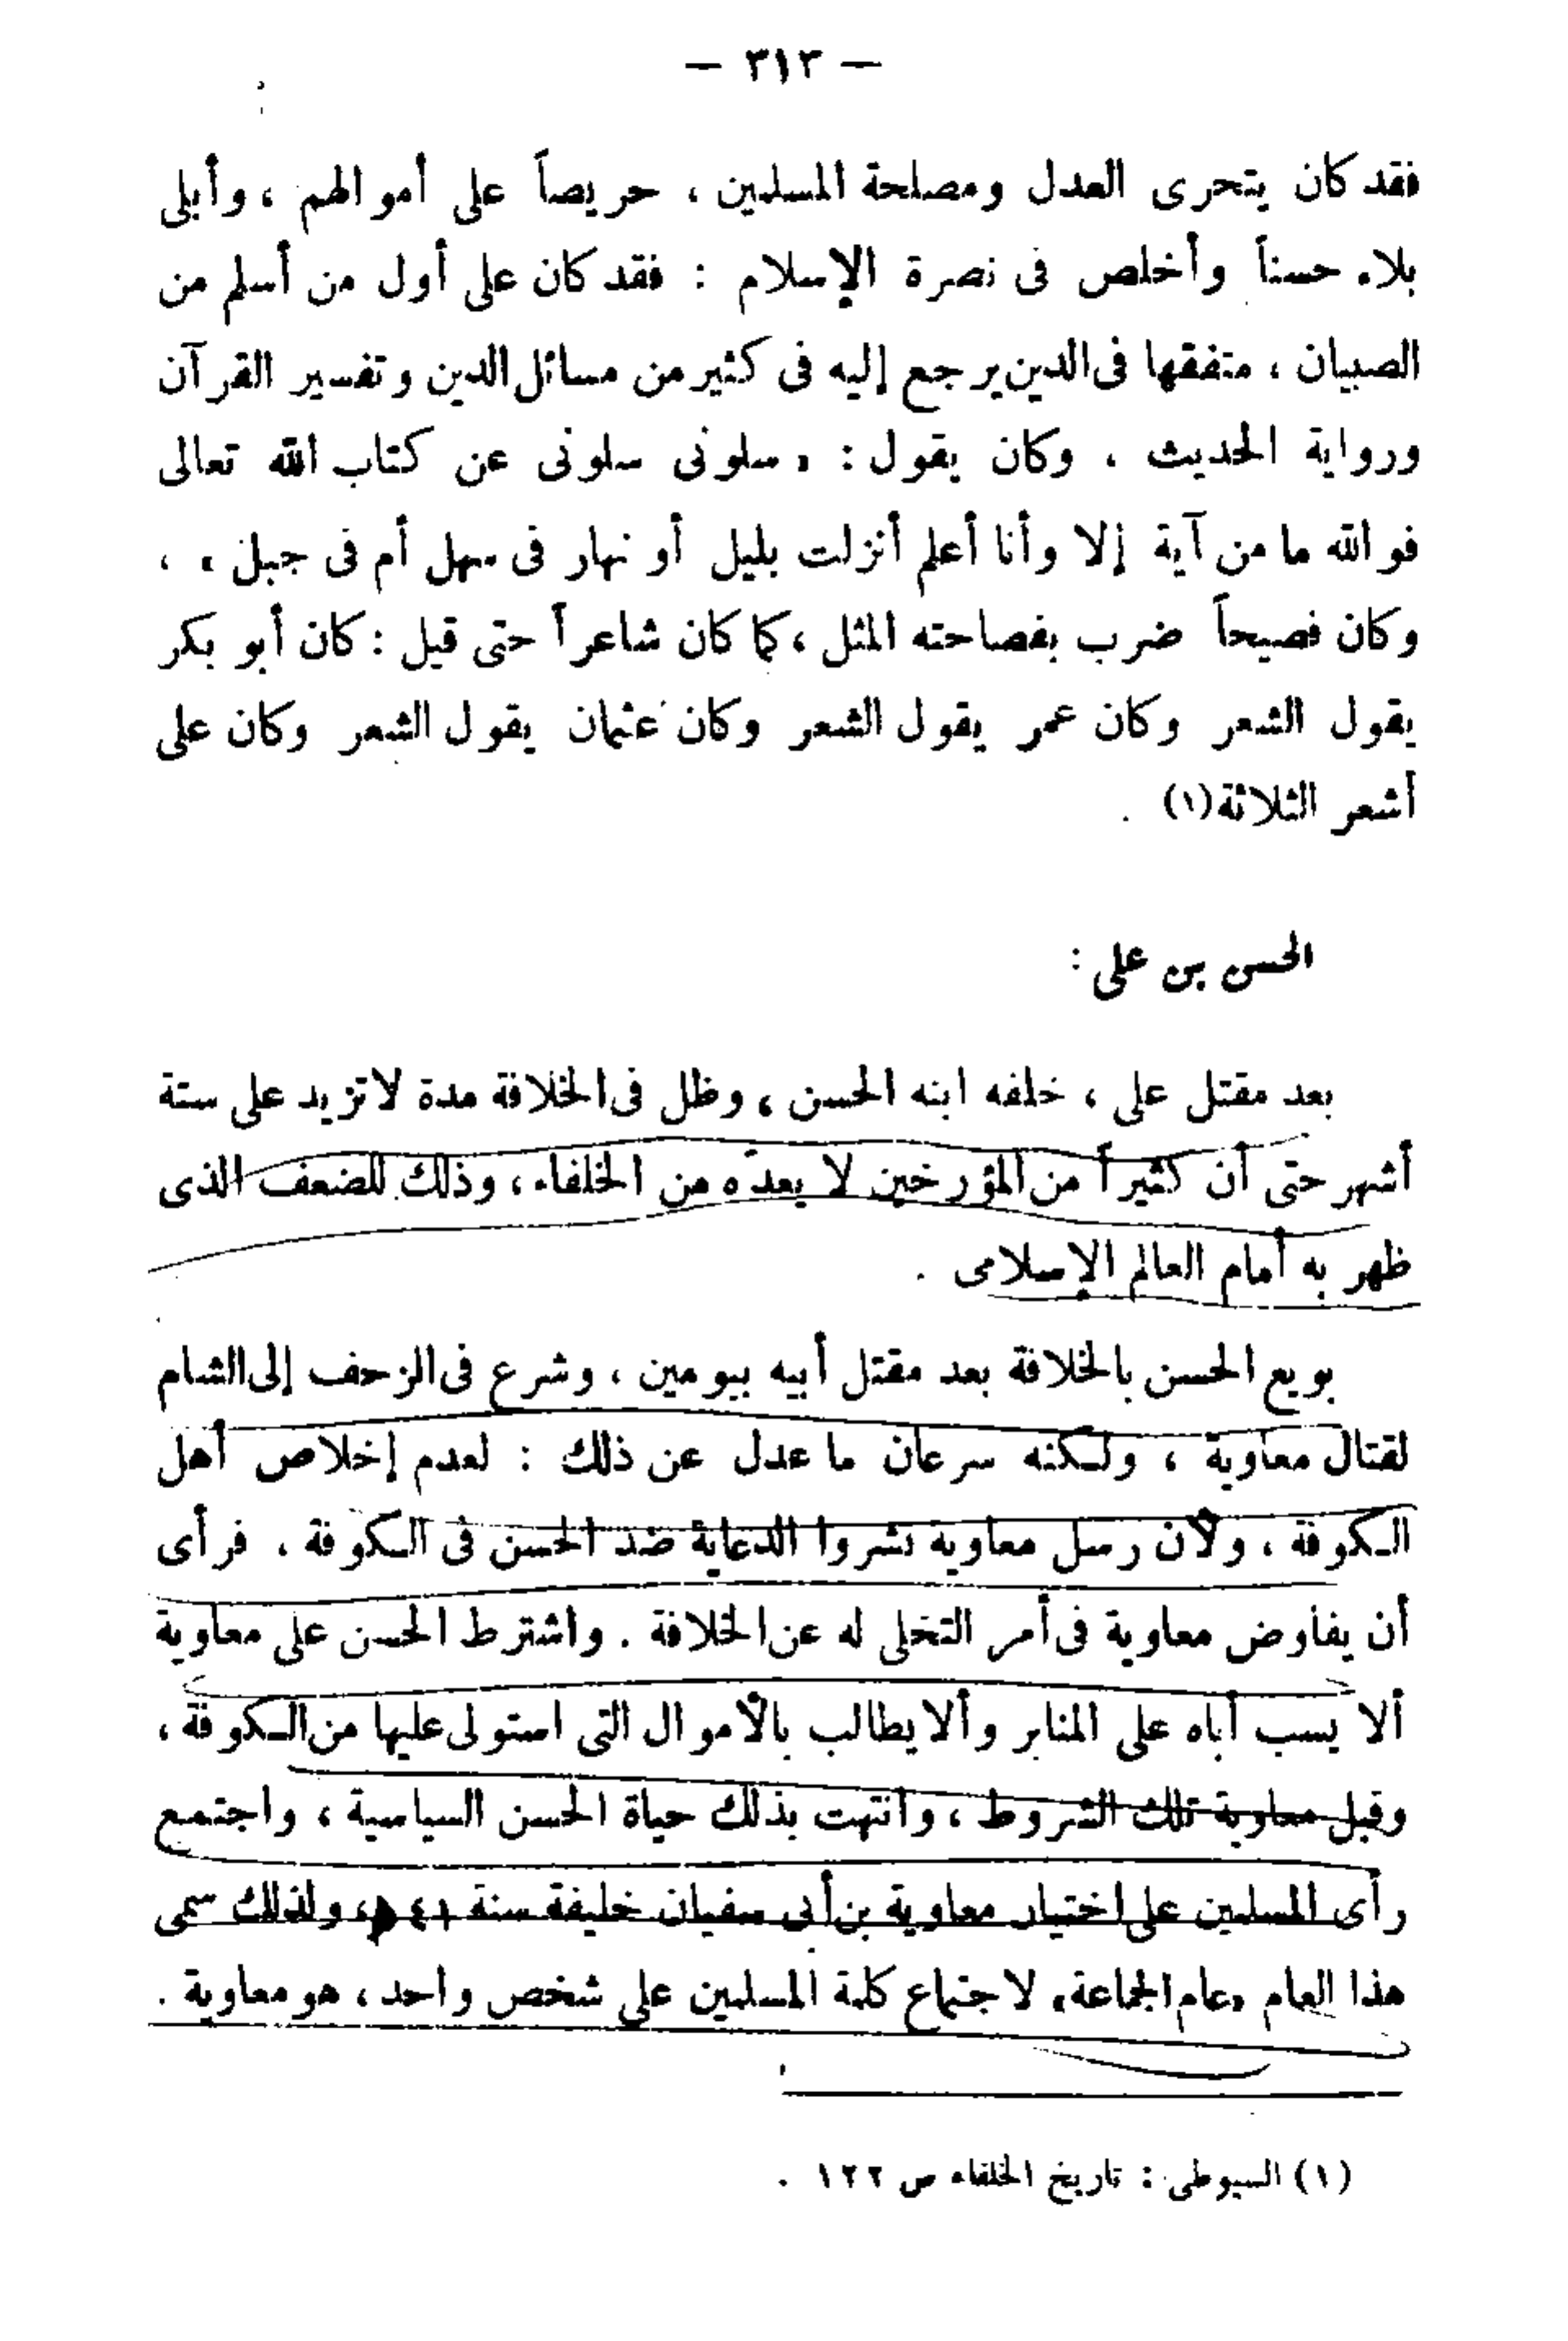 — ٣١٣ —
فقد كان يتحرى العدل ومصلحة المسلمين ، حريصاً على أموالهم ، وأبلى
بلاء حسناً وأخلص فى نصرة الإسلام : فقد كان على أول من أسلم من
الصبيان ، متفقها فى الدين يرجع إليه فى كثير من مسائل الدين وتفسير القرآن
ورواية الحديث . وكان يقول : « سلونى سلونى عن كتاب الله تعالى
فوالله ما من آية إلا وأنا أعلم أنزلت بليل أو نهار فى سهل أم فى جبل » ،
وكان فصيحاً ضرب بفصاحته المثل ، كما كان شاعراً حتى قيل : كان أبو بكر
يقول الشعر وكان عمر يقول الشعر وكان عثمان يقول الشعر وكان على
أشعر الثلاثة (١) .
الحسن بن على :
بعد مقتل على ، خلفه ابنه الحسن ، وظل فى الخلافة مدة لا تزيد على ستة
أشهر حتى أن كثيراً من المؤرخين لا يعدّه من الخلفاء ، وذلك للضعف الذى
ظهر به أمام العالم الإسلامى .
بويع الحسن بالخلافة بعد مقتل أبيه بيومين ، وشرع فى الزحف إلى الشام
لقتال معاوية ، ولكنه سرعان ما عدل عن ذلك : لعدم إخلاص أهل
الكوفة ، ولأن رسل معاوية نشروا الدعاية ضد الحسن فى الكوفة . فرأى
أن يفاوض معاوية فى أمر التخلى له عن الخلافة . واشترط الحسن على معاوية
ألا يسب أباه على المنابر وألا يطالب بالأموال التى استولى عليها من الكوفة ،
وقبل معاوية تلك الشروط ، وانتهت بذلك حياة الحسن السياسية ، واجتمع
رأى المسلمين على اختيار معاوية بن أبى سفيان خليفة سنة ٤١ ه ، ولذلك سمى
هذا العام «عام الجماعة» لاجتماع كلمة المسلمين على شخص واحد ، هو معاوية .
(١) السيوطى : تاريخ الخلفاء ص ١٢٢ .